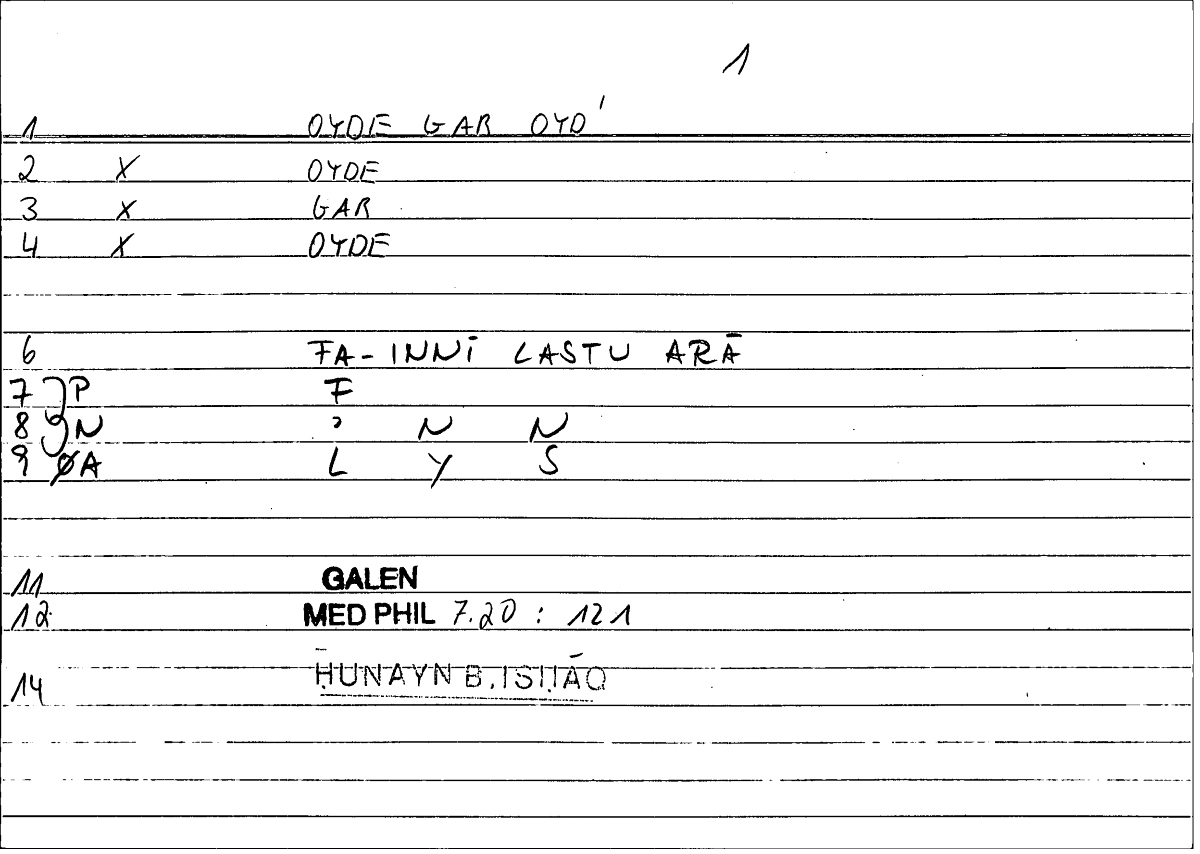 1
1 OYDE GAR OYD'
2 X OYDE
3 X GAR
4 X OYDE
6 FA-INNĪ LASTU ARĀ
7 P F
8 N ʾ N N
9 ØA L Y S
11 GALEN
12 MED PHIL 7.20 : 121
14 ḤUNAYN B. ISḤĀQ